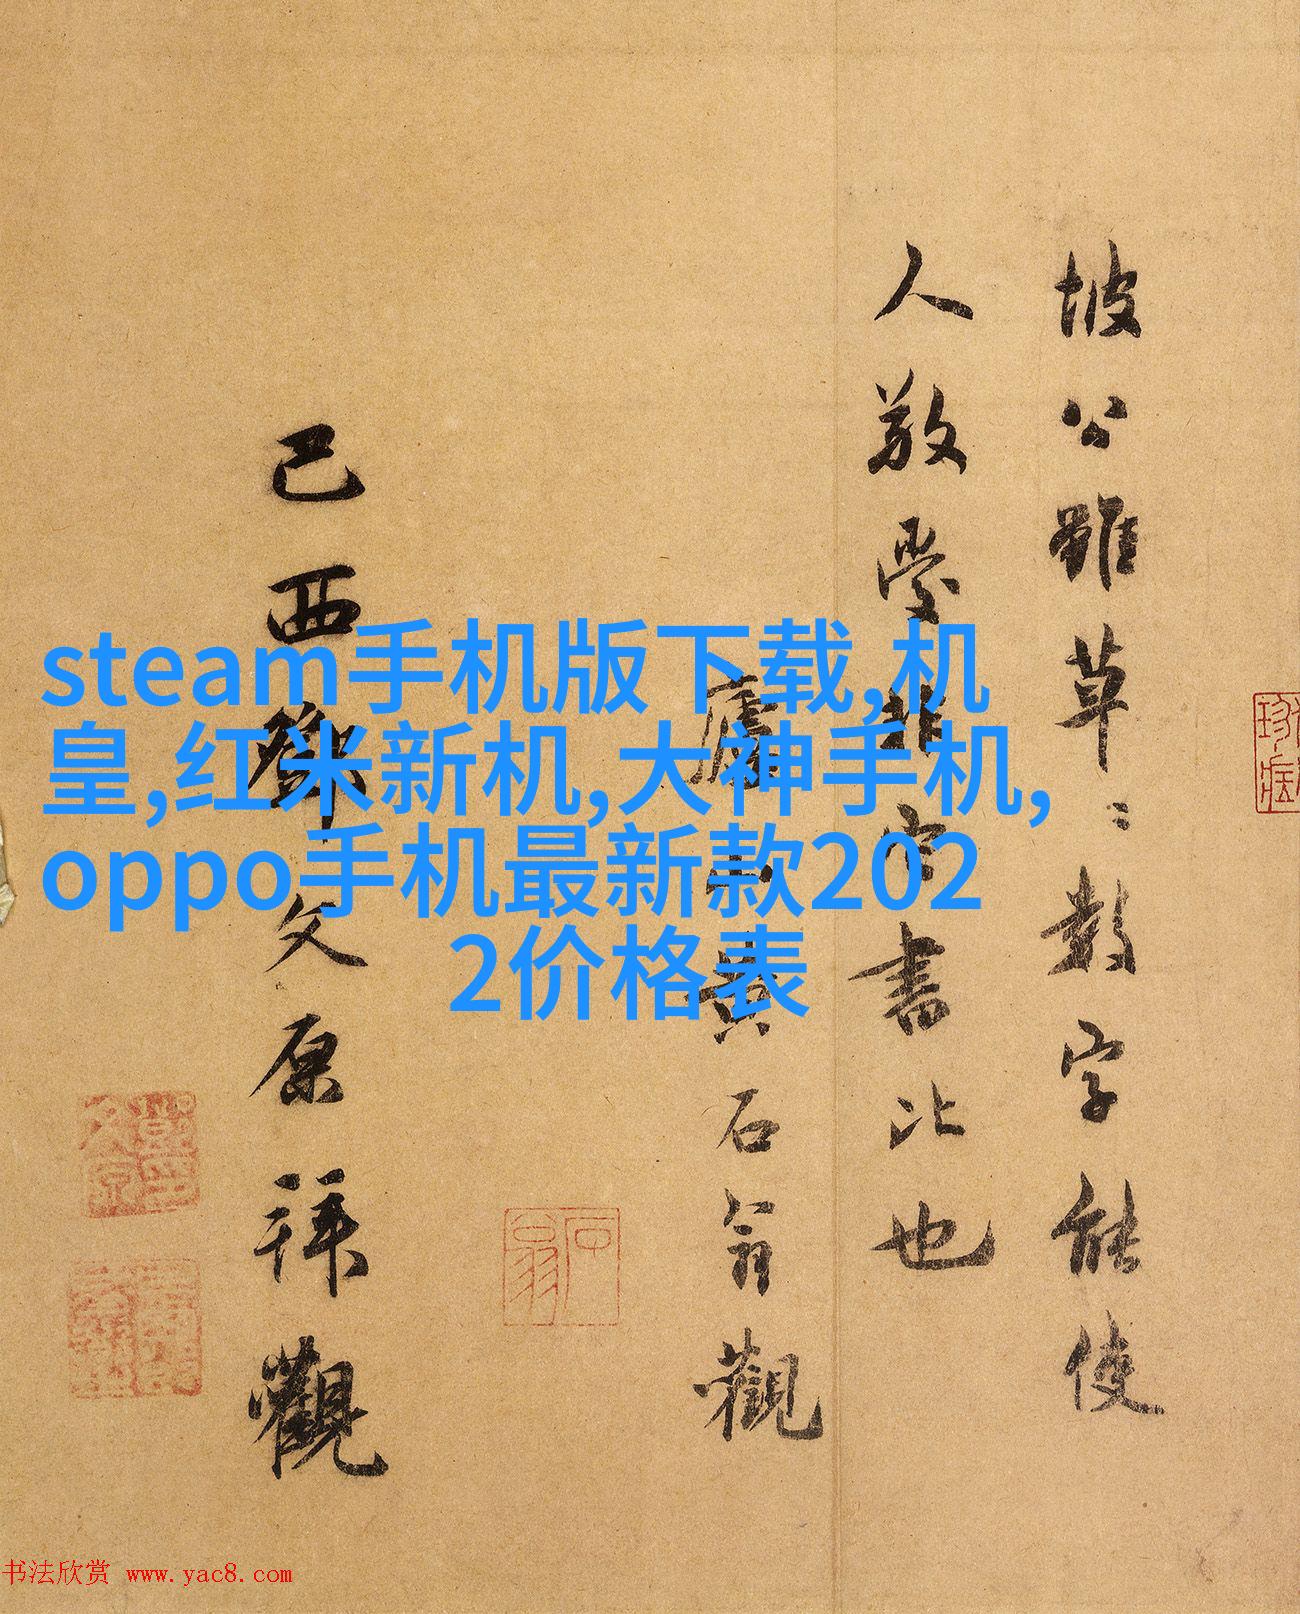 坡公雖草〻數字能使
人敬愛非字書比也
廬山黃石翁觀
己酉鄧文原拜觀
石翁
steam手机版下载,机
皇,红米新机,大神手机,
oppo手机最新款202
2价格表
书法欣赏 www.yac8.com